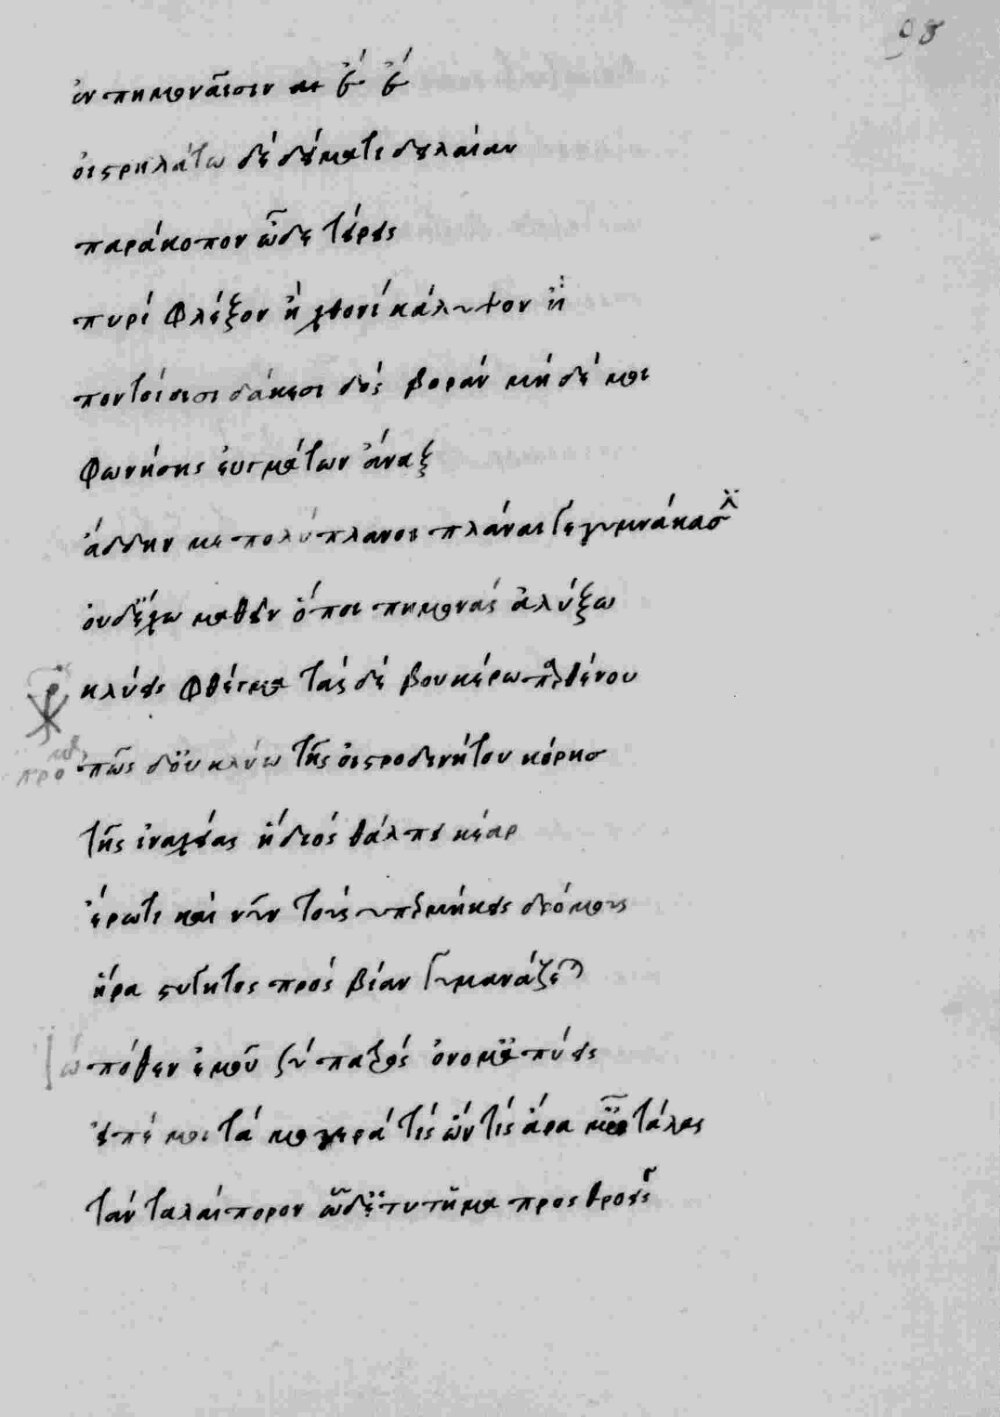 98
ἐν πημοναῖσιν αι ἒ ἔ
οἰστρηλάτω δὲ δείματι δειλαίαν
παράκοπον ὧδε τείρεις
πυρὶ φλέξον ἢ χθονὶ κάλυψον ἢ
ποντίοισι δάκεσι δὸς βορὰν μὴ δέ μοι
φωνήσης εὐγμάτων ἄναξ
ἄδδην με πολύπλανοι πλάναι γεγυμνάκασ
οὐδ' ἔχω μαθεῖν ὅποι πημονὰς ἀλύξω
κλύεις φθέγμα τᾶς δὲ βουκέρω παρθένου
προμθ πῶς δ' οὐ κλύω τῆς οἰστροδινήτου κόρησ
τῆς ἰναχείας ἣ διὸς θάλπει κέαρ
ἔρωτι καὶ νῦν τοὺς ὑπερμήκεις δρόμους
ἥρα στυγητὸς πρὸς βίαν γυμνάζεται
ἰώ πόθεν ἐμοῦ σὺ πατρὸς ὄνομ' ἀπύεις
εἰπέ μοι τᾷ μογερᾷ τίς ὢν τίς ἄρα μ' ὦ τάλας
τὰν ταλαίπορον ὧδ' ἐτυτῆμα προσθροεῖς